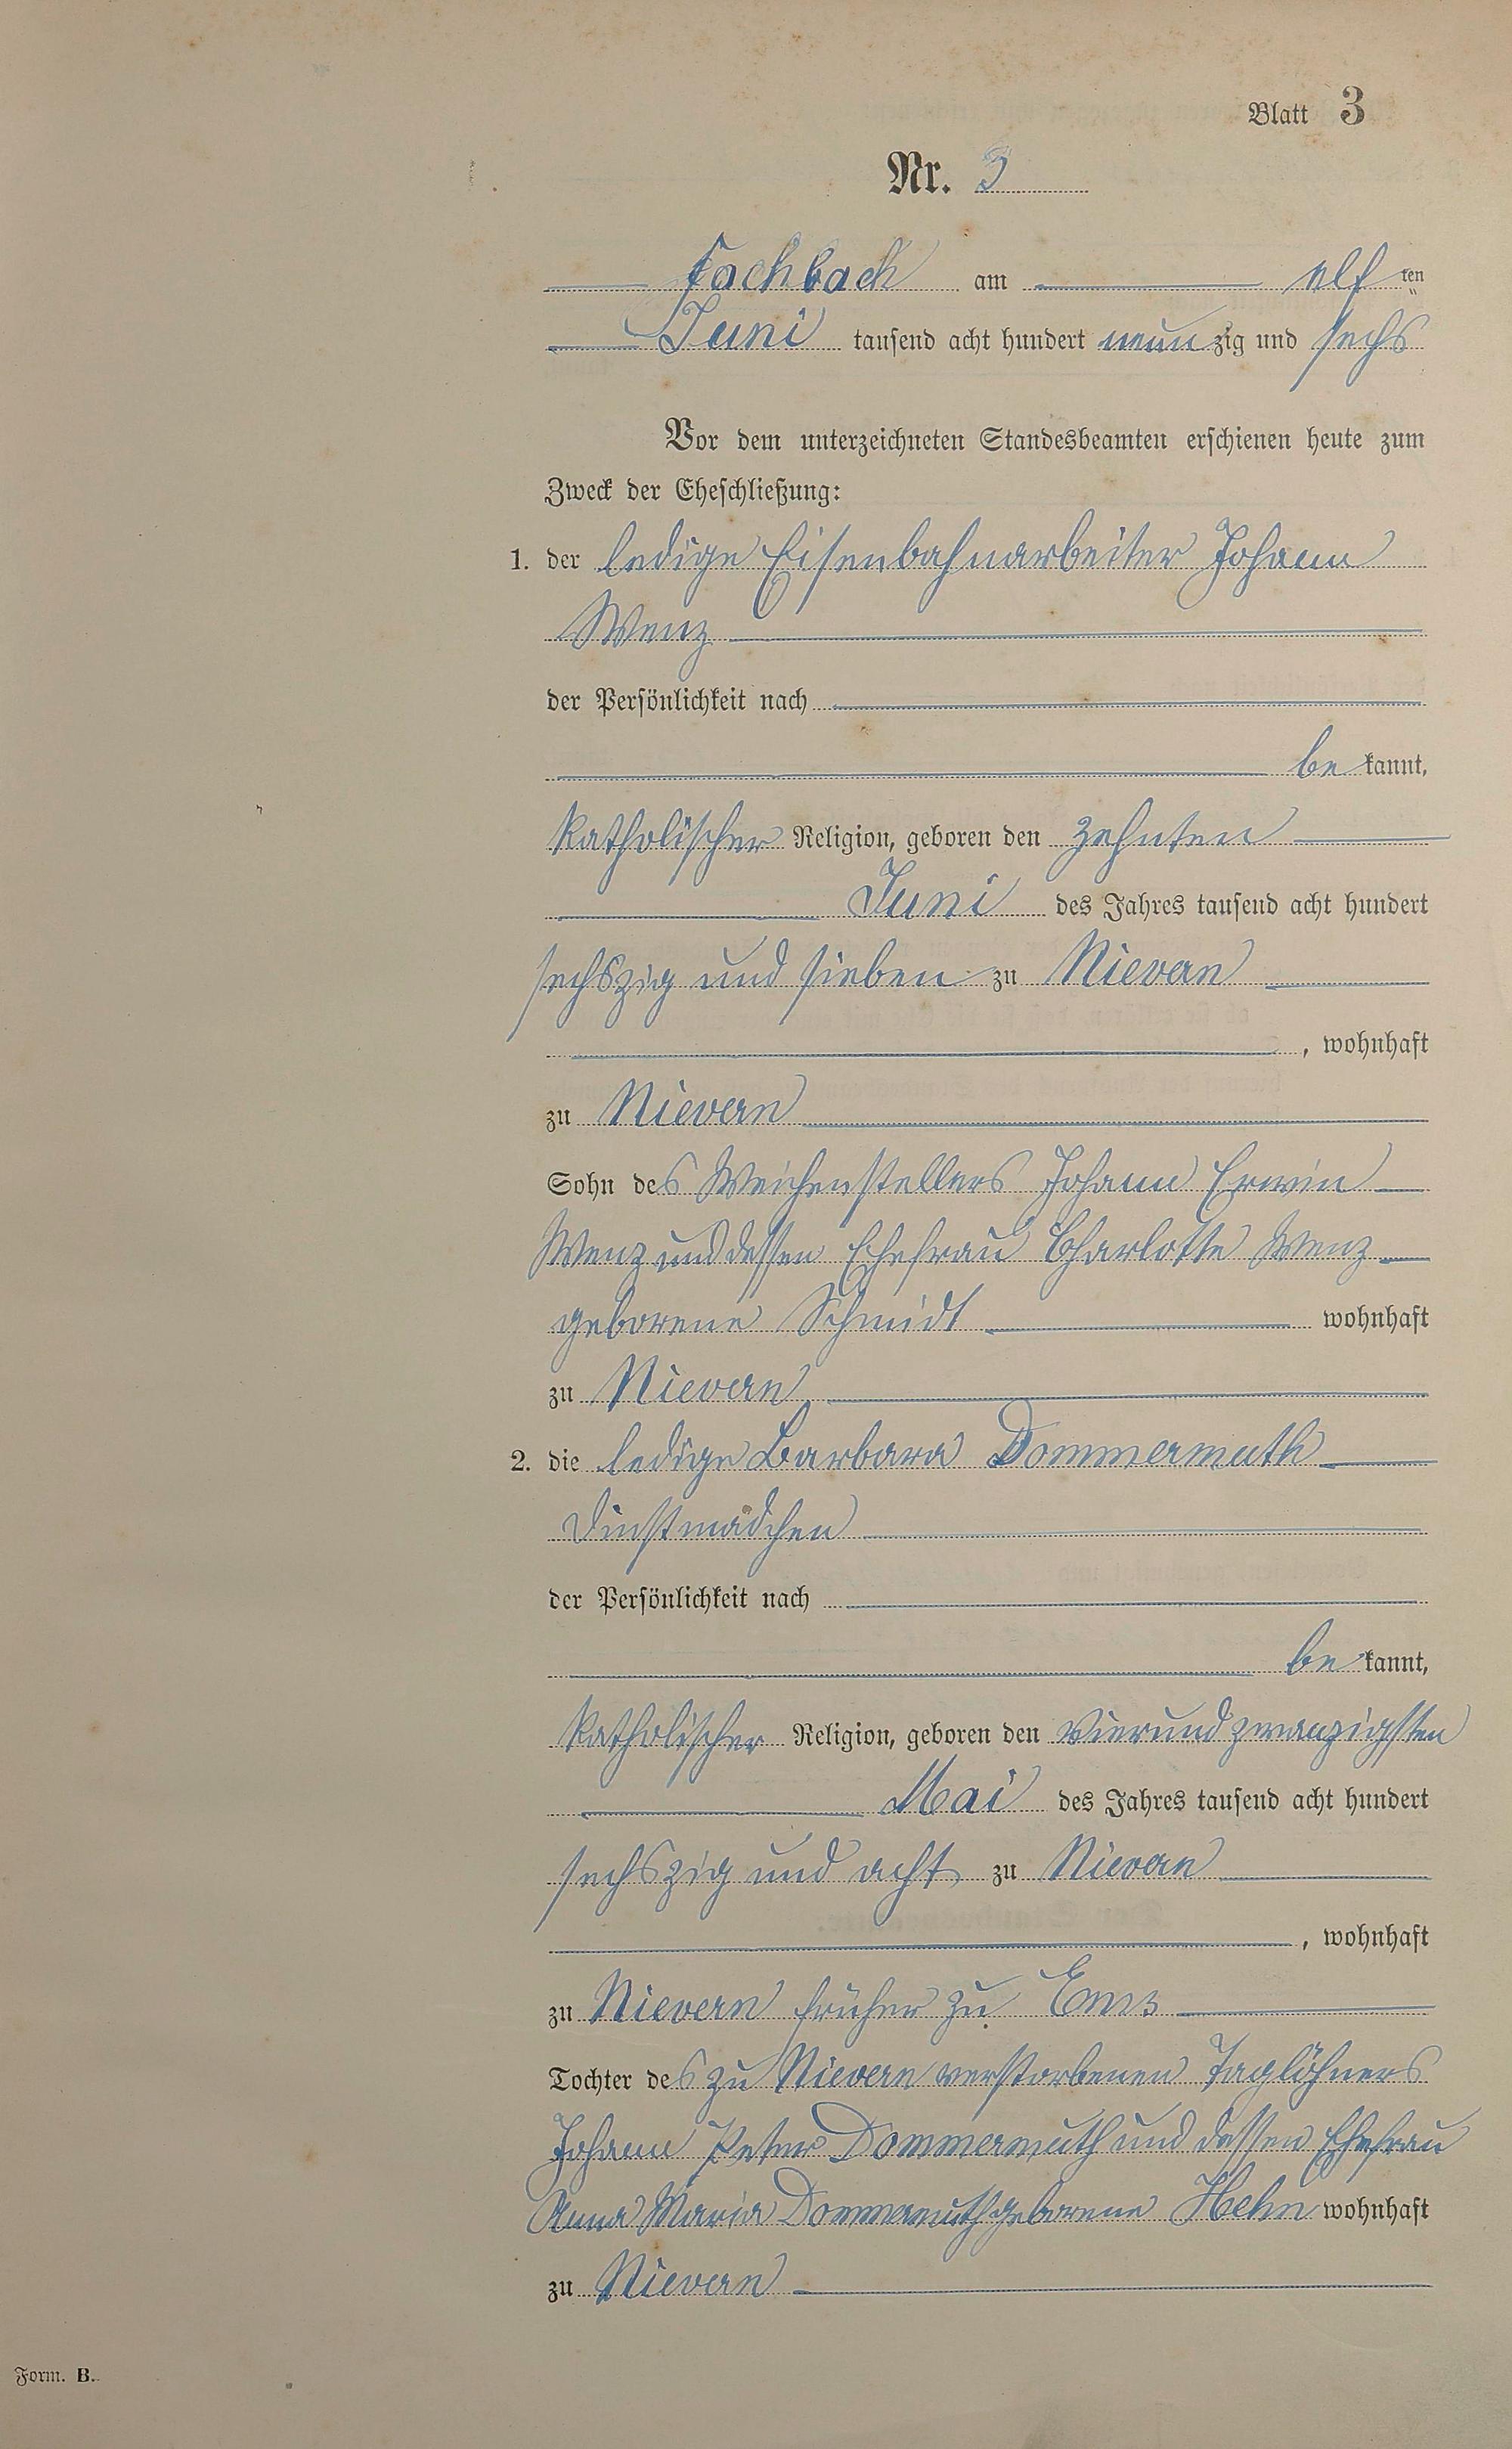 Blatt 3
Nr. 3
Fachbach am elf ten
Juni tausend acht hundert neunzig und sechs
Vor dem unterzeichneten Standesbeamten erschienen heute zum
Zweck der Eheschließung:
1. der ledige Eisenbahnarbeiter Johann
Wenz
der Persönlichkeit nach
bekannt,
katholischer Religion, geboren den zehnten
Juni des Jahres tausend acht hundert
sechszig und sieben zu Nievern
, wohnhaft
zu Nievern
Sohn des Weichenstellers Johann Erwin
Wenz und dessen Ehefrau Charlotte Wenz
geborene Schmidt wohnhaft
zu Nievern
2. die ledige Barbara Dommermuth
Dinstmädchen
der Persönlichkeit nach
bekannt,
katholischer Religion, geboren den vierundzwanzigsten
Mai des Jahres tausend acht hundert
sechszig und acht zu Nievern
, wohnhaft
zu Nievern früher zu Ems
Tochter des zu Nievern verstorbenen Taglöhners
Johann Peter Dommermuth und dessen Ehefrau
Anna Maria Dommermuth geborene Hehn wohnhaft
zu Nievern
Form. B.